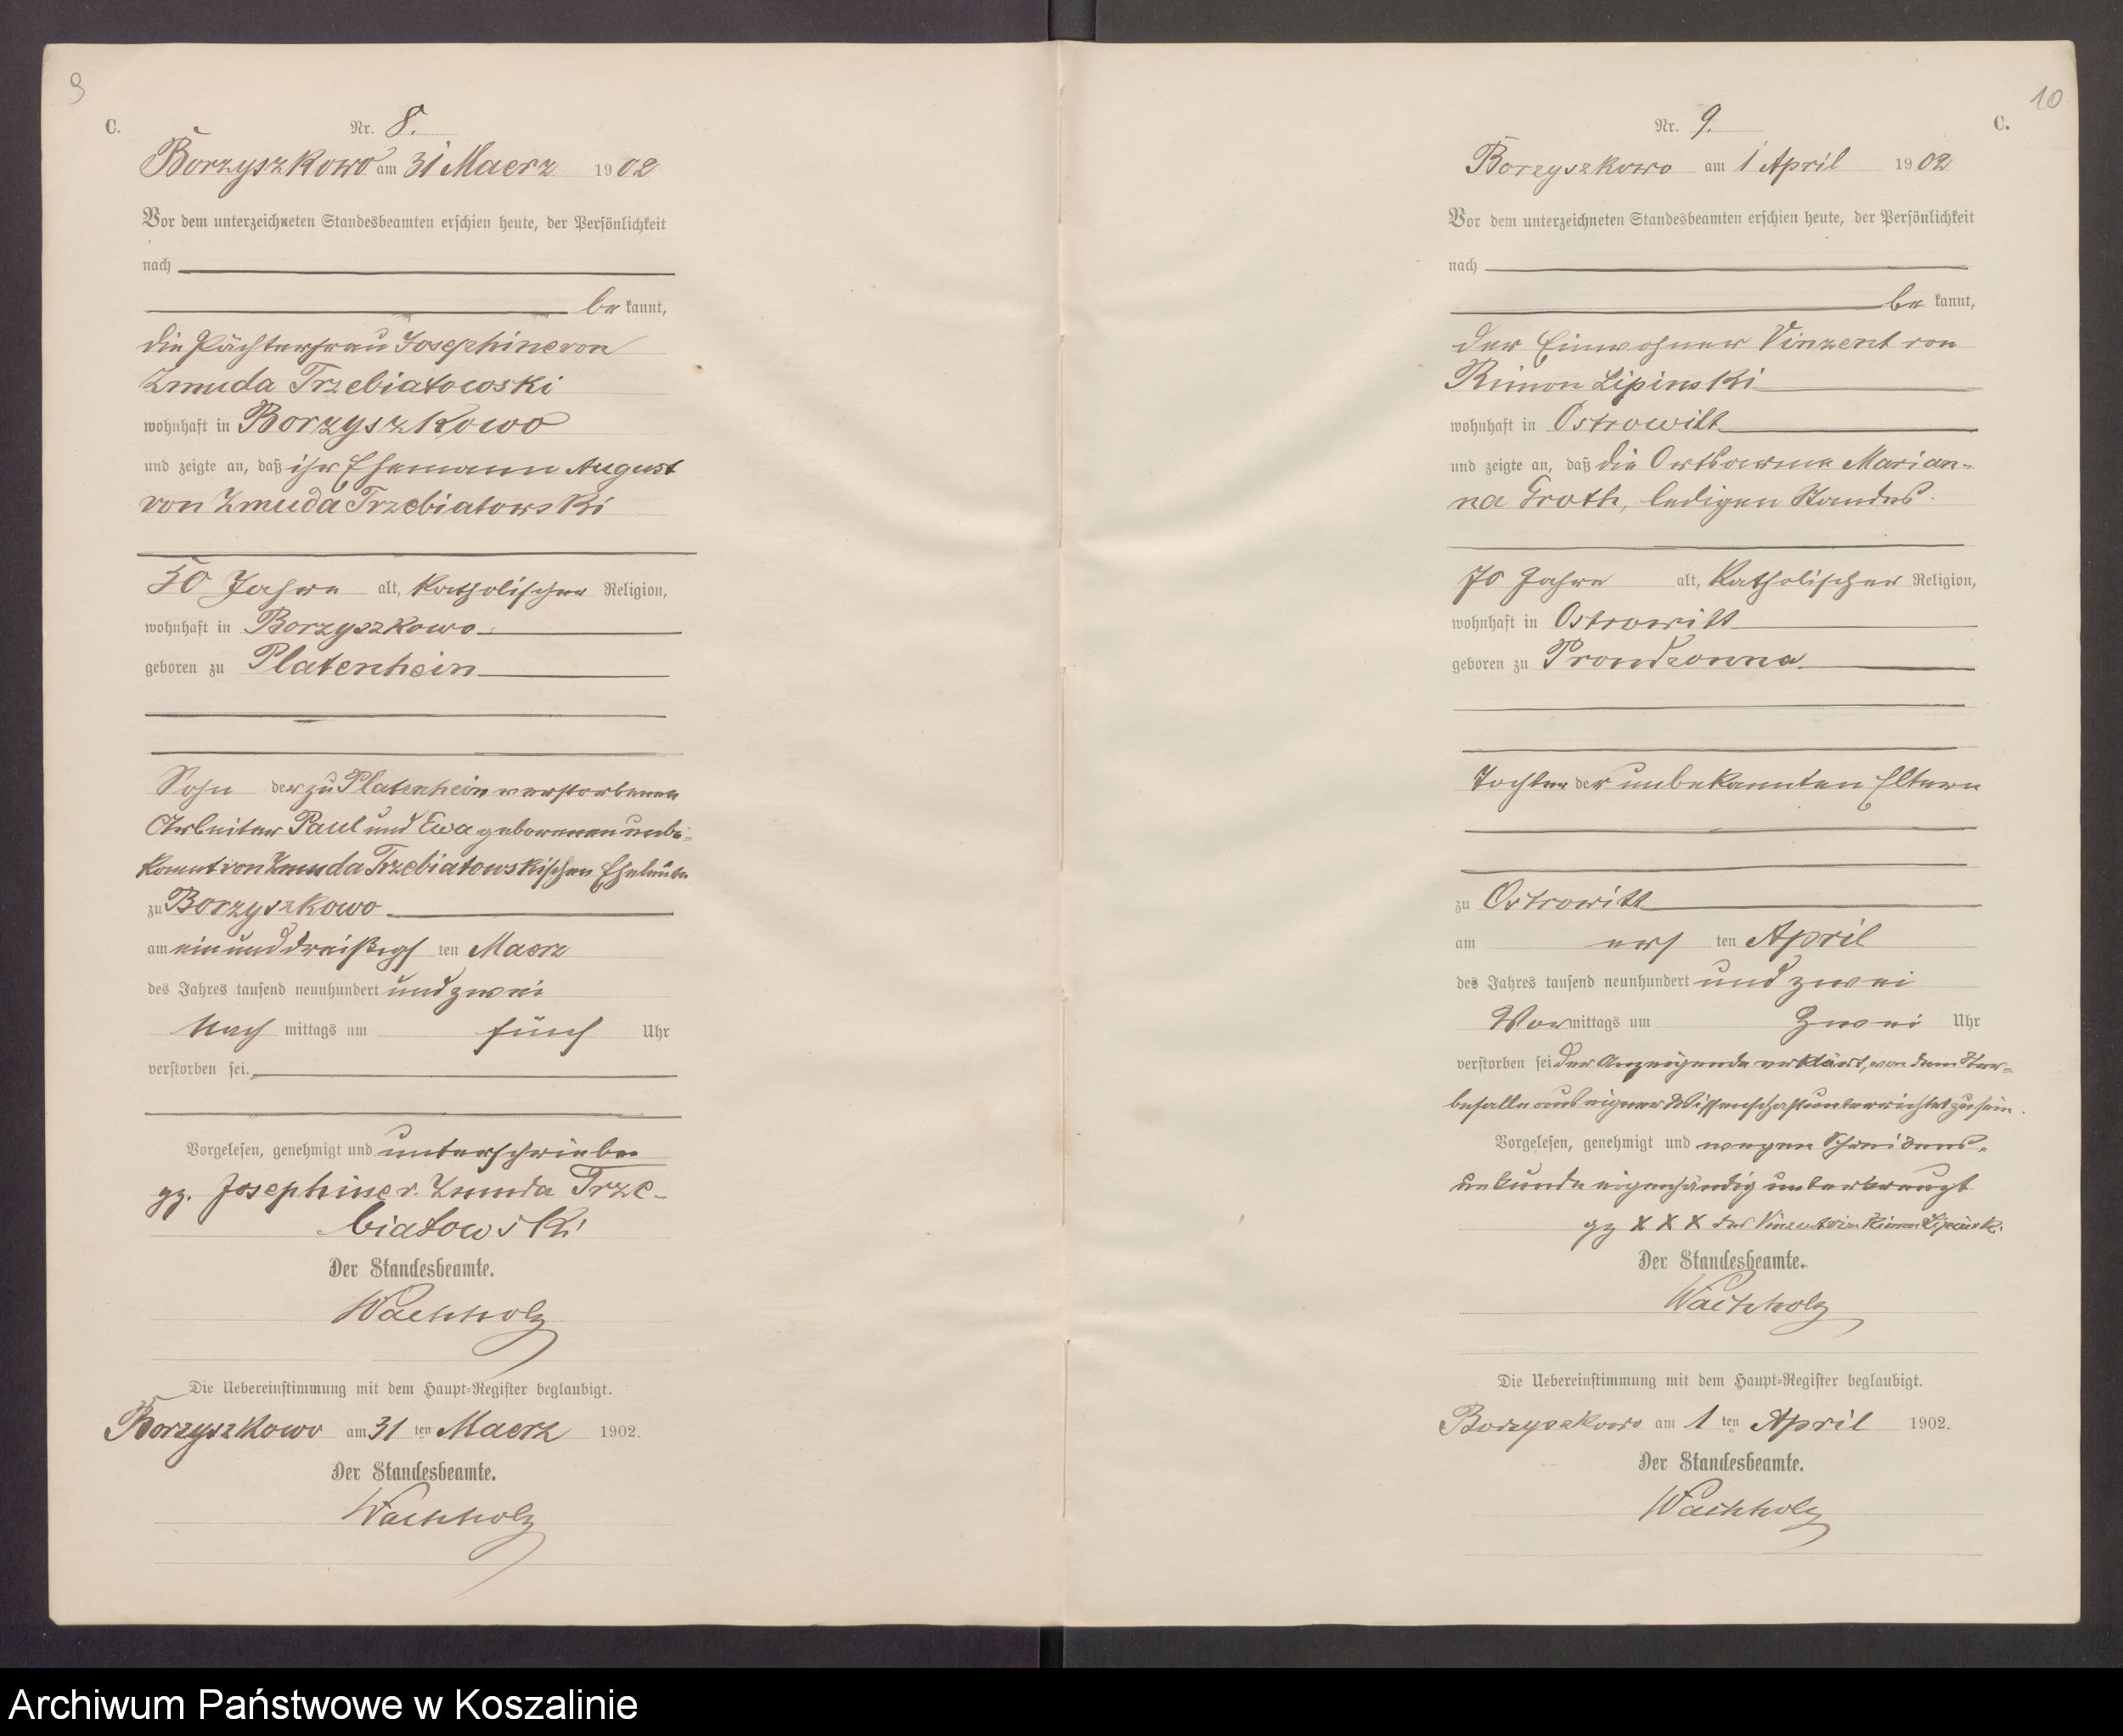 9
C.
Nr. 8.
Borzyszkowo am 31 Maerz 1902
Vor dem unterzeichneten Standesbeamten erschien heute, der Persönlichkeit
nach
be kannt,
die Pächterfrau Josephine von
Zmuda Trzebiatowski
wohnhaft in Borzyszkowo
und zeigte an, daß ihr Ehemann August
von Zmuda Trzebiatowski
50 Jahre alt, katholischer Religion,
wohnhaft in Borzyszkowo
geboren zu Platenhein
Sohn der zu Platenhein verstorbenen
Arbeiter Paul und Ewa geborenen unbe-
kannt von Zmuda Trzebiatowskischen Eheleute
zu Borzyszkowo
am ein und dreißigs ten Maerz
des Jahres tausend neunhundert und zwei
Nach mittags um fünf Uhr
verstorben sei.
Vorgelesen, genehmigt und unterschrieben
gz. Josephine v. Zmuda Trze-
biatowski
Der Standesbeamte.
Wachholz
Die Uebereinstimmung mit dem Haupt-Register beglaubigt.
Borzyszkowo am 31 ten Maerz 1902.
Der Standesbeamte.
Wachholz
10
C.
Nr. 9.
Borzyszkowo am 1 April 1902
Vor dem unterzeichneten Standesbeamten erschien heute, der Persönlichkeit
nach
be kannt,
der Einwohner Vinzent von
Rimon Lipinski
wohnhaft in Ostrowitt
und zeigte an, daß die Ortsarme Marian-
na Groth, ledigen Standes
70 Jahre alt, katholischer Religion,
wohnhaft in Ostrowitt
geboren zu Prondzonna
Tochter der unbekannten Eltern
zu Ostrowitt
am ers ten April
des Jahres tausend neunhundert und zwei
Vor mittags um zwei Uhr
verstorben sei der Anzeigende erklärt, von dem Ster-
befalle aus eigner Wissenschaft unterrichtet zu sein.
Vorgelesen, genehmigt und wegen Schreibens-
unkunde eigenhändig unterkreuzt
gz X X X des Vinzent von Rimon Lipinski
Der Standesbeamte.
Wachholz
Die Uebereinstimmung mit dem Haupt-Register beglaubigt.
Borzyszkowo am 1 ten April 1902.
Der Standesbeamte.
Wachholz
Archiwum Państwowe w Koszalinie